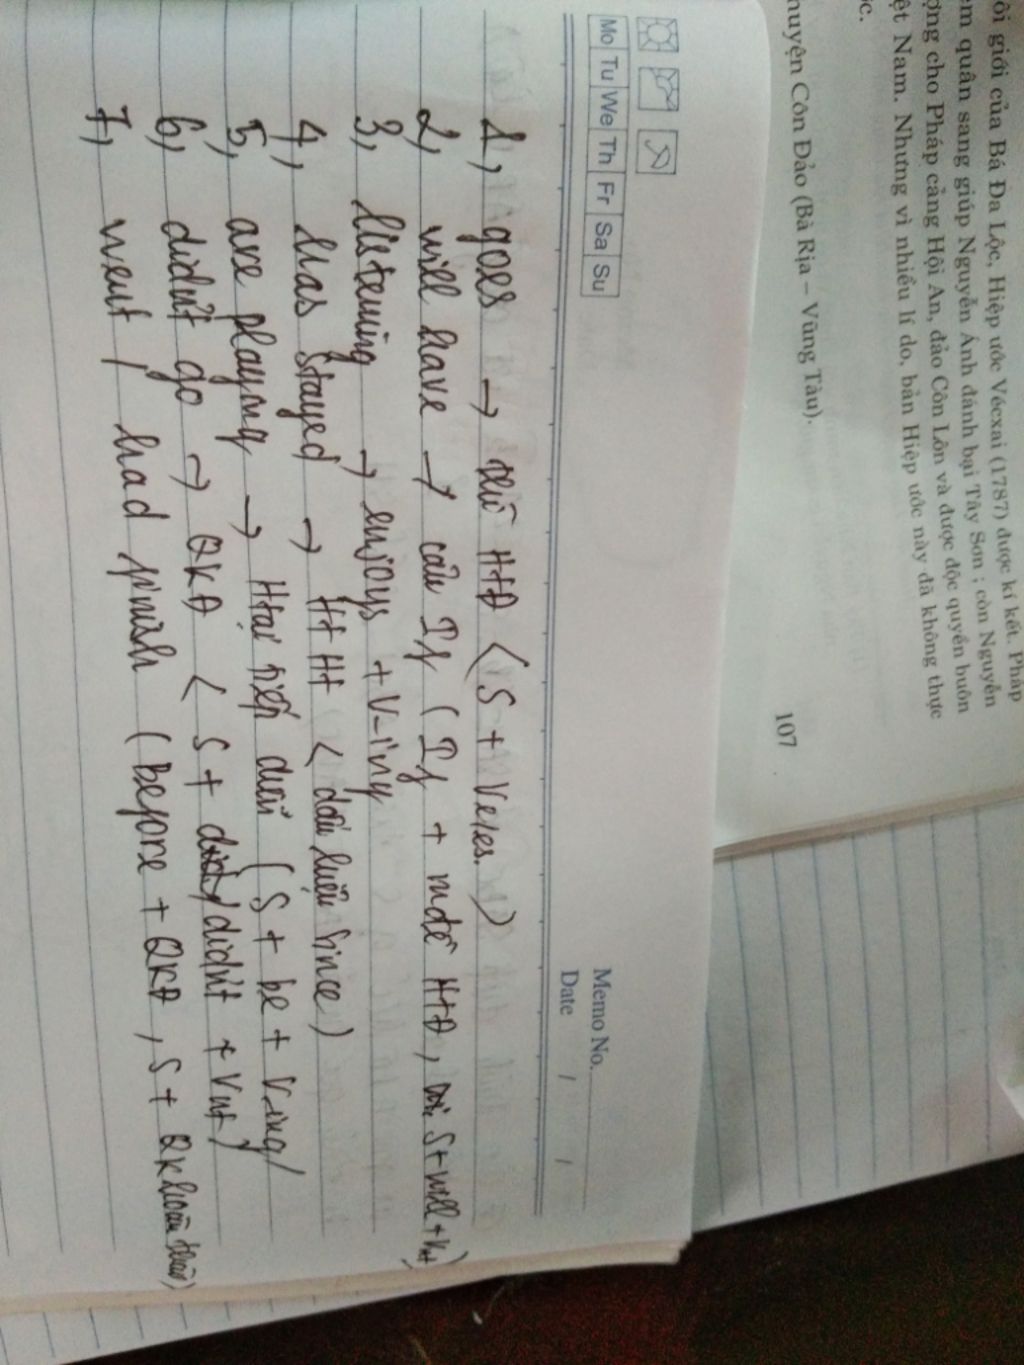 ôi giới của Bá Đa Lộc, Hiệp ước Vécxai (1787) được kí kết. Pháp
em quân sang giúp Nguyễn Ánh đánh bại Tây Sơn ; còn Nguyễn
ợng cho Pháp cảng Hội An, đảo Côn Lôn và được độc quyền buôn
ệt Nam. Nhưng vì nhiều lí do, bản Hiệp ước này đã không thực
ộc.
huyện Côn Đảo (Bà Rịa – Vũng Tàu).
107
Memo No.
Mo Tu We Th Fr Sa Su
Date / /
1, goes → thì HTĐ (S + Ve/es.)
2, will have → câu If (If + mđề HTĐ, S + will + Vnt)
3, listening → enjoys + V-ing
4, has stayed → HTHT (dấu hiệu since)
5, are playing → HTại tiếp diễn (S + be + V-ing)
6, didn't go → QKĐ (S + did / didn't + Vnt)
7, went / had finish (before + QKĐ, S + QK hoàn thành)